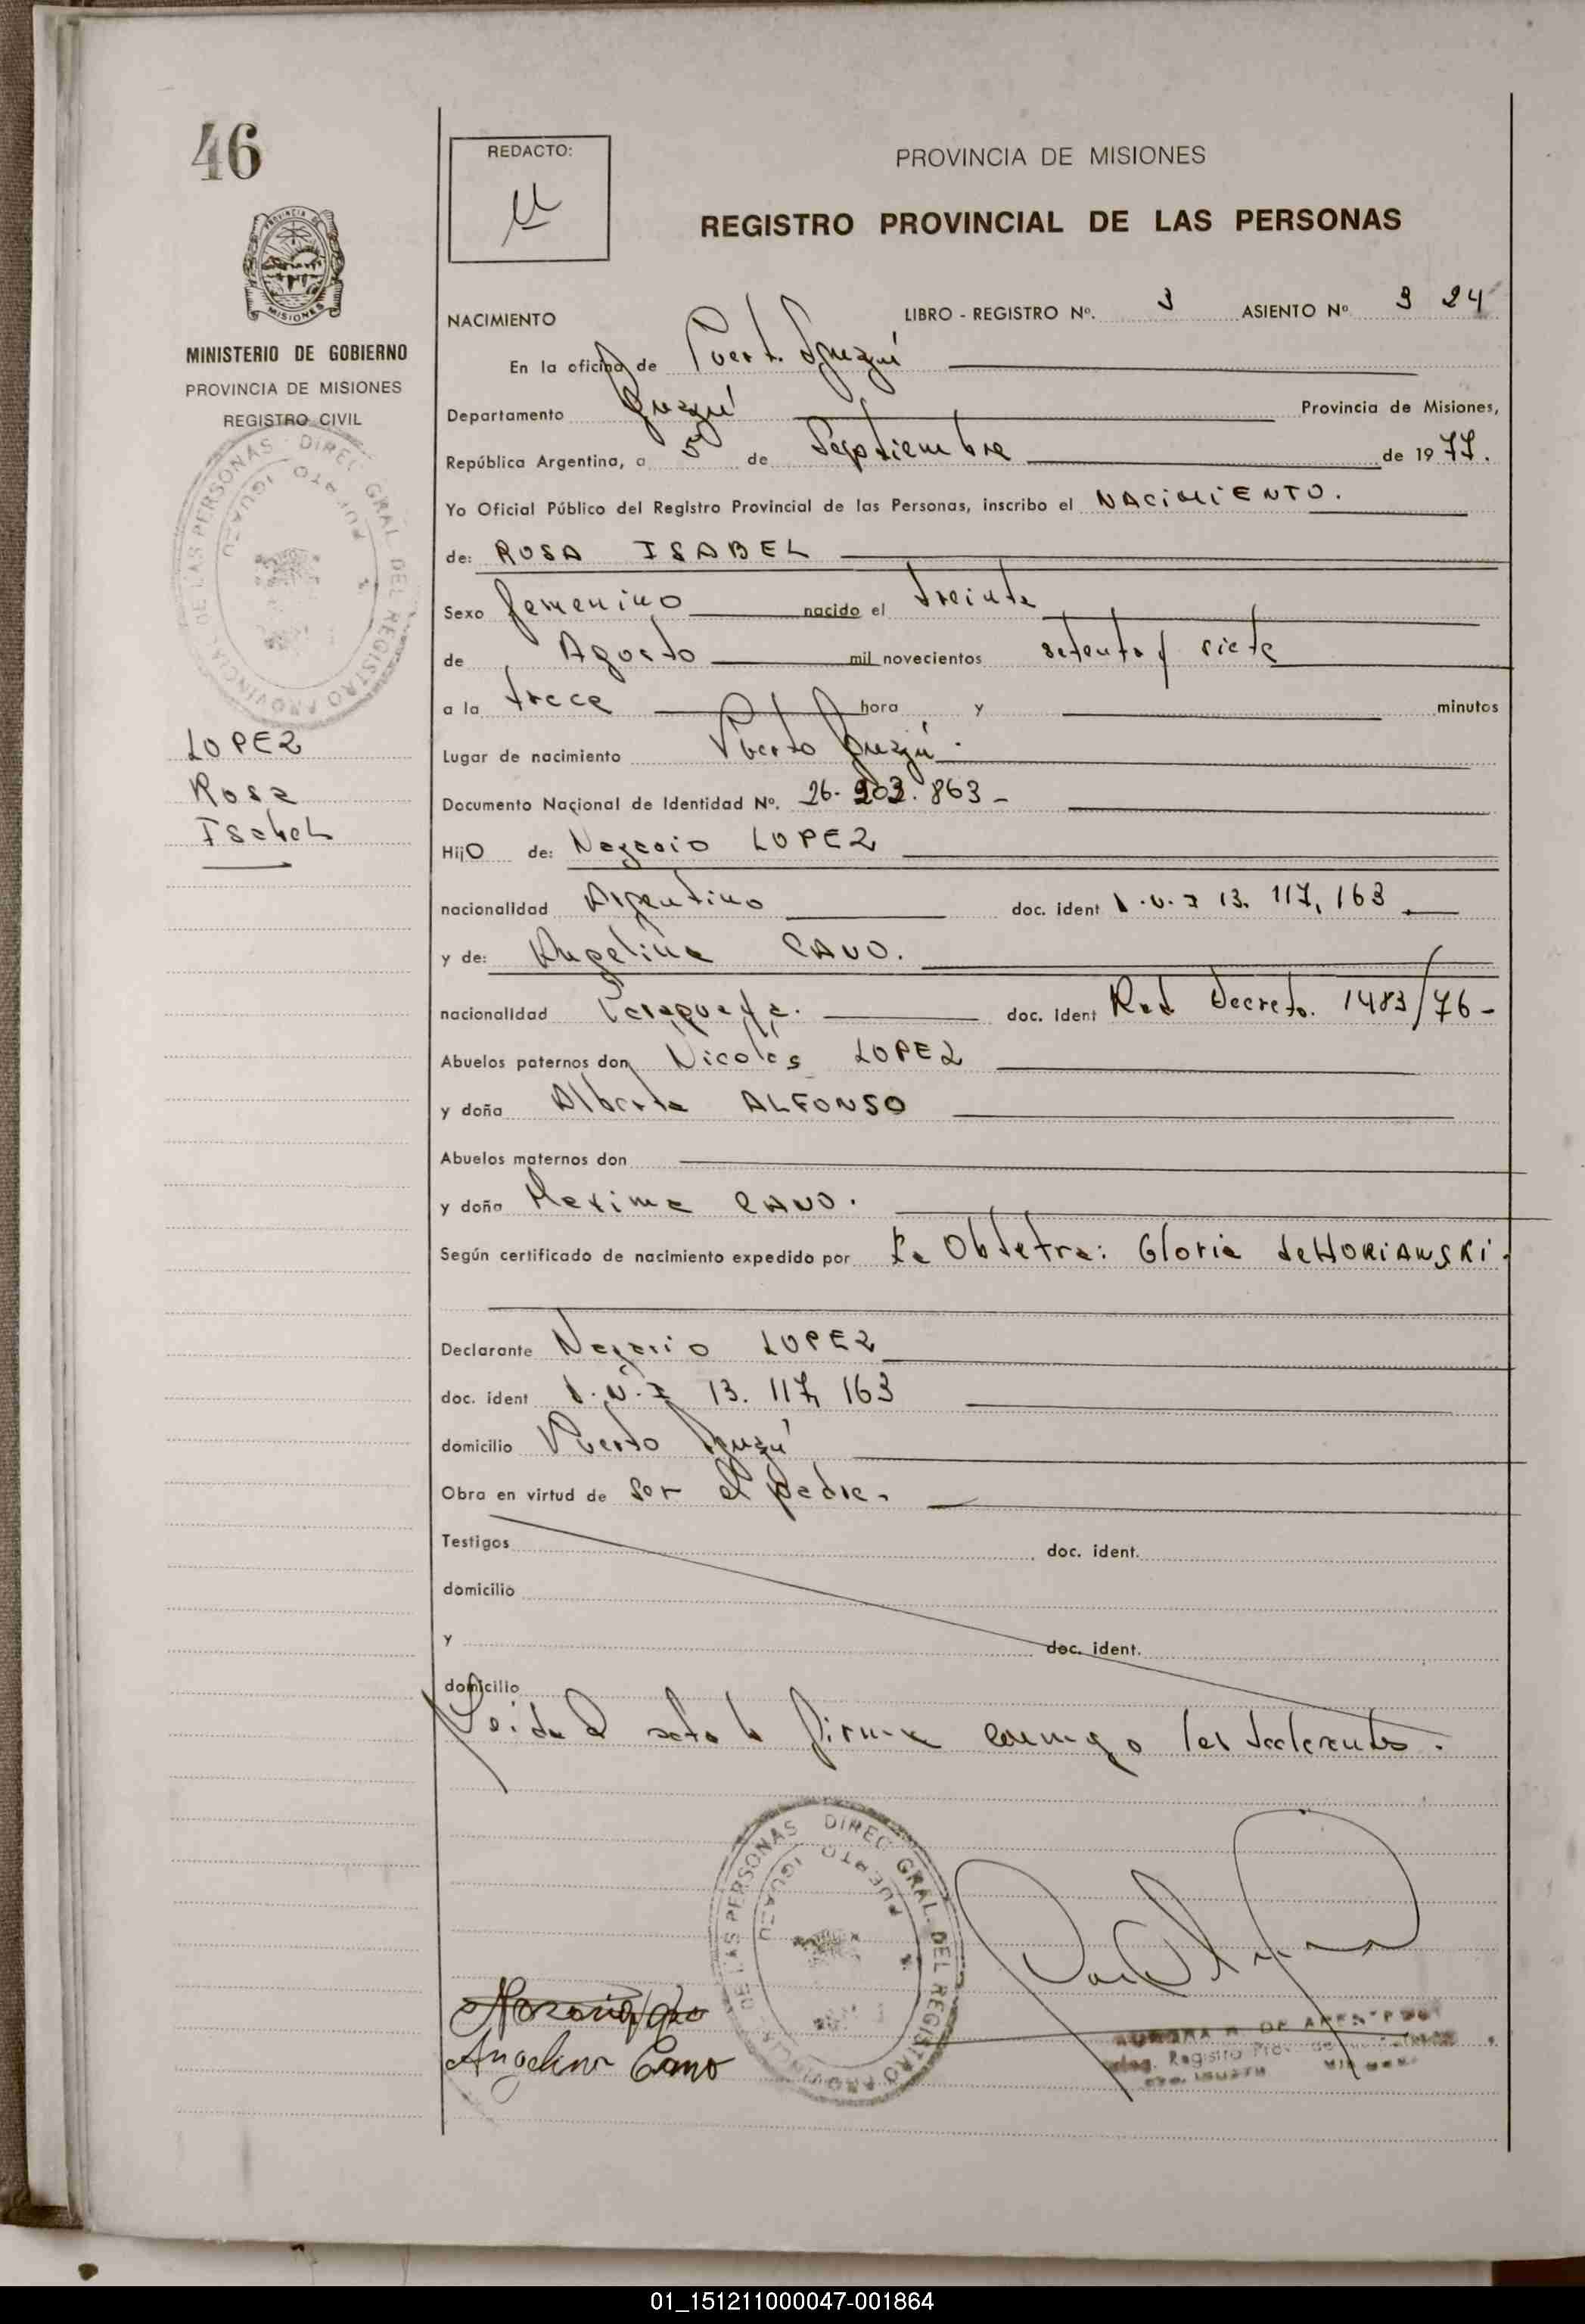 46
MINISTERIO DE GOBIERNO
PROVINCIA DE MISIONES
REGISTRO CIVIL
DIREC. GRAL. DEL REGISTRO PROVINCIAL DE LAS PERSONAS
PUERTO IGUAZU
LOPEZ
Rosa
Isabel
REDACTO:
PROVINCIA DE MISIONES
REGISTRO PROVINCIAL DE LAS PERSONAS
NACIMIENTO LIBRO - REGISTRO Nº. 3 ASIENTO Nº 324
En la oficina de Puerto Iguazú
Departamento Iguazú Provincia de Misiones,
República Argentina, a 5 de Septiembre de 1977.
Yo Oficial Público del Registro Provincial de las Personas, inscribo el NACIMIENTO.
de: ROSA ISABEL
Sexo femenino nacido el treinta
de Agosto mil novecientos setenta y siete
a la trece hora y minutos
Lugar de nacimiento Puerto Iguazú.
Documento Nacional de Identidad Nº. 26.203.863-
HijO de: LOPEZ
nacionalidad Argentino doc. ident D.N.I 13.117,163
y de: Angelina CANO.
nacionalidad Paraguaya. doc. ident Rad Decreto. 1483/76-
Abuelos paternos don Nicolás LOPEZ
y doña Alberta ALFONSO
Abuelos maternos don
y doña Maxima CANO.
Según certificado de nacimiento expedido por La Obtetra: Gloria de HORIANSKI.
Declarante LOPEZ
doc. ident D.N.I 13.117,163
domicilio Puerto Iguazú
Obra en virtud de ser el padre.
Testigos doc. ident.
domicilio
y doc. ident.
domicilio
Leida el acta la firma conmigo los declarantes.
DIREC. GRAL. DEL REGISTRO PROVINCIAL DE LAS PERSONAS
PUERTO IGUAZU
Angelina Cano
Registro Prov.
01_151211000047-001864